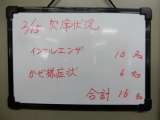 2/15 欠席状況
インフルエンザ 10名
かぜ様症状 6名
合計 16名